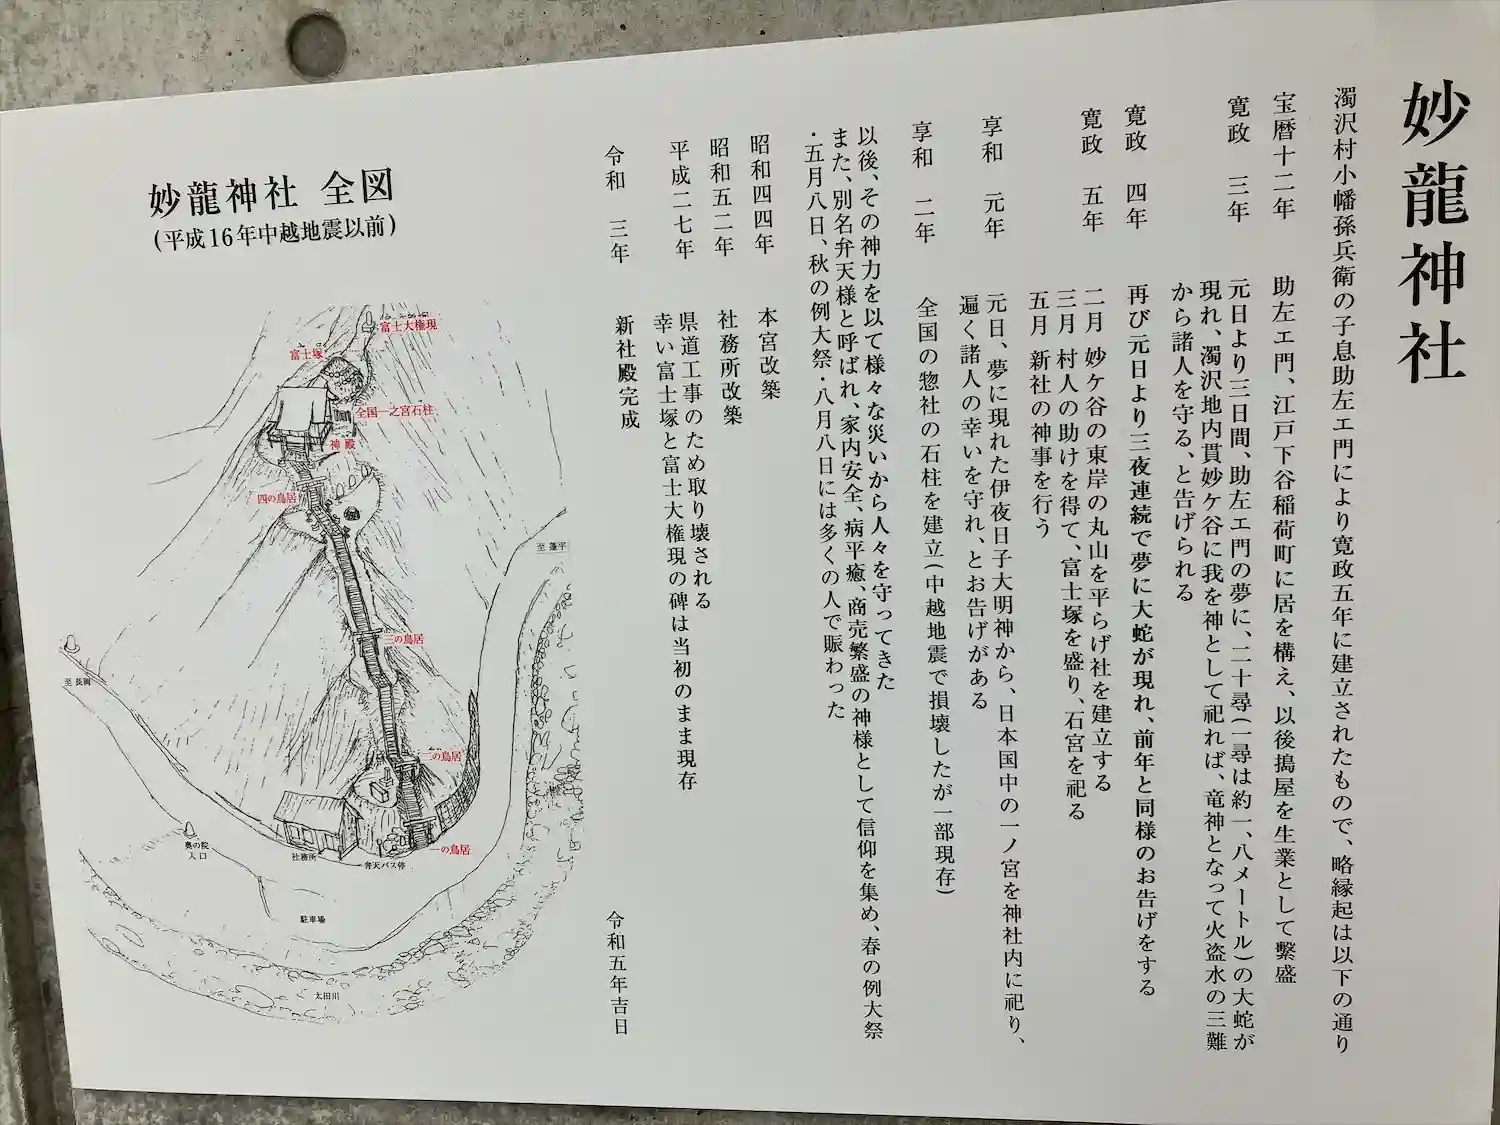 妙龍神社
濁沢村小幡孫兵衛の子息助左エ門により寛政五年に建立されたもので、略縁起は以下の通り
宝暦十二年 助左エ門、江戸下谷稲荷町に居を構え、以後搗屋を生業として繋盛
寛政 三年 元日より三日間、助左エ門の夢に、二十尋(一尋は約一、八メートル)の大蛇が
現れ、濁沢地内貫妙ケ谷に我を神として祀れば、竜神となって火盗水の三難
から諸人を守る、と告げられる
寛政 四年 再び元日より三夜連続で夢に大蛇が現れ、前年と同様のお告げをする
寛政 五年 二月 妙ケ谷の東岸の丸山を平らげ社を建立する
三月 村人の助けを得て、富士塚を盛り、石宮を祀る
五月 新社の神事を行う
享和 元年 元日、夢に現れた伊夜日子大明神から、日本国中の一ノ宮を神社内に祀り、
遍く諸人の幸いを守れ、とお告げがある
享和 二年 全国の惣社の石柱を建立(中越地震で損壊したが一部現存)
以後、その神力を以て様々な災いから人々を守ってきた
また、別名弁天様と呼ばれ、家内安全、病平癒、商売繁盛の神様として信仰を集め、春の例大祭
・五月八日、秋の例大祭・八月八日には多くの人で賑わった
昭和四四年 本宮改築
昭和五二年 社務所改築
平成二七年 県道工事のため取り壊される
幸い富士塚と富士大権現の碑は当初のまま現存
令和 三年 新社殿完成
令和五年吉日
妙龍神社 全図
(平成16年中越地震以前)
富士大権現
富士塚
全国一之宮石柱
神殿
四の鳥居
至 蓬平
三の鳥居
至 長岡
二の鳥居
一の鳥居
奥の院
入口
社務所
弁天バス停
駐車場
太田川